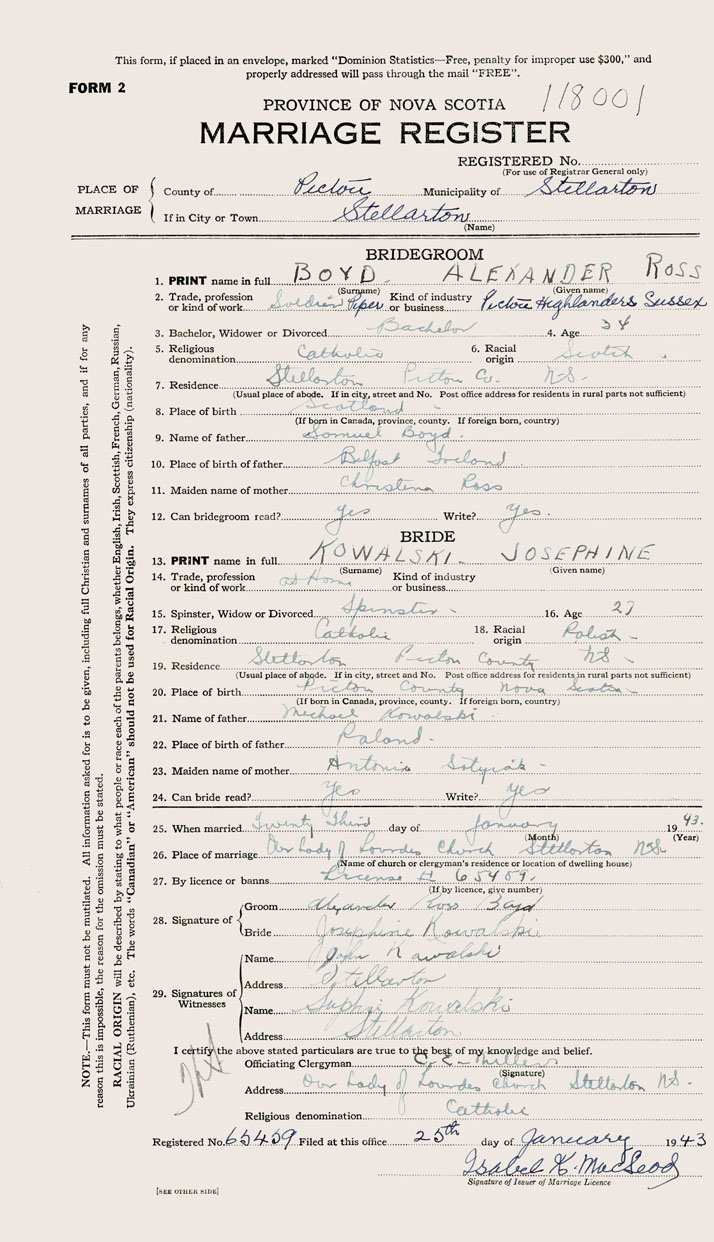 This form, if placed in an envelope, marked "Dominion Statistics—Free, penalty for improper use $300," and
properly addressed will pass through the mail "FREE".
FORM 2
118001
PROVINCE OF NOVA SCOTIA
MARRIAGE REGISTER
REGISTERED No.
(For use of Registrar General only)
PLACE OF MARRIAGE
County of Pictou Municipality of Stellarton
If in City or Town Stellarton
(Name)
BRIDEGROOM
1. PRINT name in full BOYD ALEXANDER ROSS
(Surname) (Given name)
2. Trade, profession or kind of work Soldier Piper Kind of industry or business Pictou Highlanders Sussex
3. Bachelor, Widower or Divorced Bachelor 4. Age 34
5. Religious denomination Catholic 6. Racial origin Scotch
7. Residence Stellarton Pictou Co. N.S.
(Usual place of abode. If in city, street and No. Post office address for residents in rural parts not sufficient)
8. Place of birth Scotland
(If born in Canada, province, county. If foreign born, country)
9. Name of father Samuel Boyd.
10. Place of birth of father Belfast Ireland
11. Maiden name of mother Christena Ross
12. Can bridegroom read? yes Write? Yes.
BRIDE
13. PRINT name in full KOWALSKI JOSEPHINE
(Surname) (Given name)
14. Trade, profession or kind of work at Home Kind of industry or business
15. Spinster, Widow or Divorced Spinster 16. Age 27
17. Religious denomination Catholic 18. Racial origin Polish
19. Residence Stellarton Pictou County NS
(Usual place of abode. If in city, street and No. Post office address for residents in rural parts not sufficient)
20. Place of birth Pictou County Nova Scotia
(If born in Canada, province, county. If foreign born, country)
21. Name of father Michael Kowalski
22. Place of birth of father Poland
23. Maiden name of mother Antonia
24. Can bride read? Yes Write? Yes
25. When married Twenty Third day of January 1943.
(Month) (Year)
26. Place of marriage Our Lady of Lourdes Church Stellarton NS
(Name of church or clergyman's residence or location of dwelling house)
27. By licence or banns License H 65459.
(If by licence, give number)
28. Signature of
Groom Alexander Ross Boyd
Bride Josephine Kowalski
29. Signatures of Witnesses
Name John Kowalski
Address Stellarton
Name Sophie Kowalski
Address Stellarton
I certify the above stated particulars are true to the best of my knowledge and belief.
Officiating Clergyman C. E. Miller
(Signature)
Address Our Lady of Lourdes Church Stellarton NS.
Religious denomination Catholic
Registered No. 65459 Filed at this office 25th day of January 1943
Isabel K. MacLeod
Signature of Issuer of Marriage Licence
[SEE OTHER SIDE]
NOTE.—This form must not be mutilated. All information asked for is to be given, including full Christian and surnames of all parties, and if for any
reason this is impossible, the reason for the omission must be stated.
RACIAL ORIGIN will be described by stating to what people or race each of the parents belongs, whether English, Irish, Scottish, French, German, Russian,
Ukrainian (Ruthenian), etc. The words "Canadian" or "American" should not be used for Racial Origin. They express citizenship (nationality).